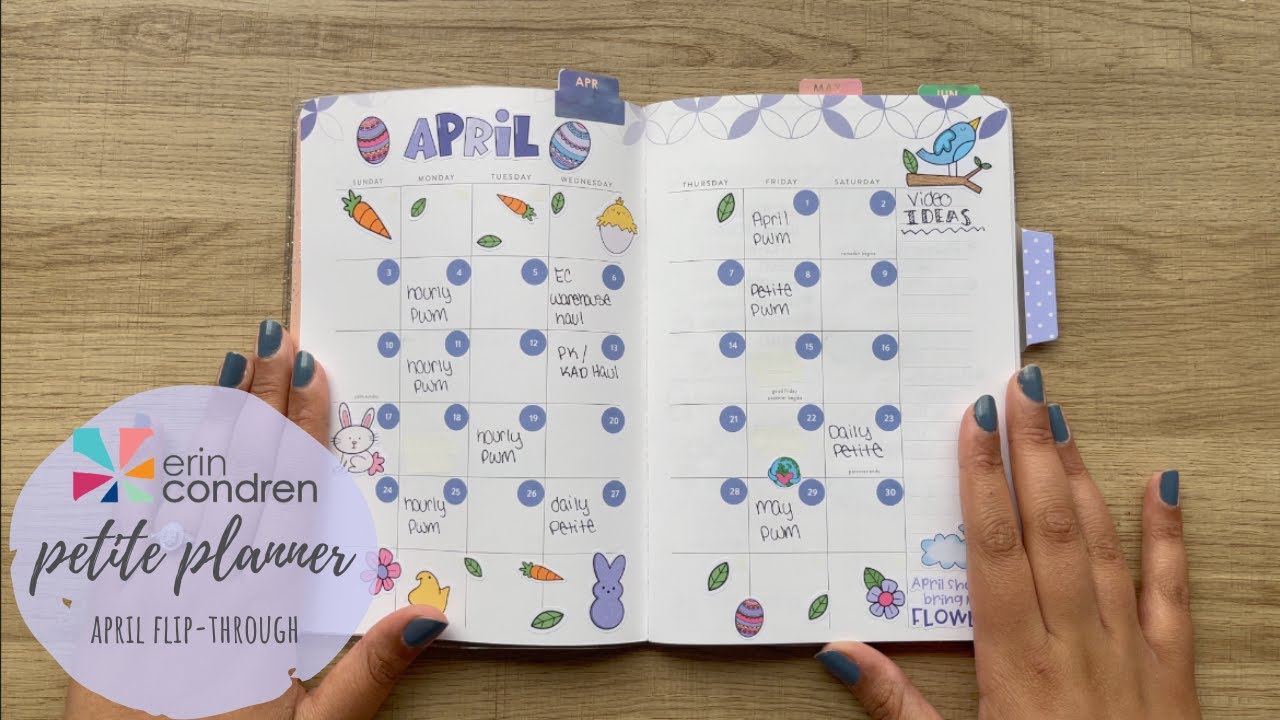 APR
MAY
JUN
APRIL
SUNDAY MONDAY TUESDAY WEDNESDAY
THURSDAY FRIDAY SATURDAY
1 2
April
PWM
ramadan begins
Video
IDEAS
3 4 5 6
hourly
PWM
EC
warehouse
haul
7 8 9
Petite
PWM
10 11 12 13
hourly
PWM
PK/
KAD Haul
14 15 16
good friday
passover begins
17 18 19 20
hourly
PWM
21 22 23
Daily
Petite
passover ends
24 25 26 27
hourly
PWM
daily
Petite
28 29 30
may
PWM
April
bring
erin
condren
petite planner
APRIL FLIP-THROUGH